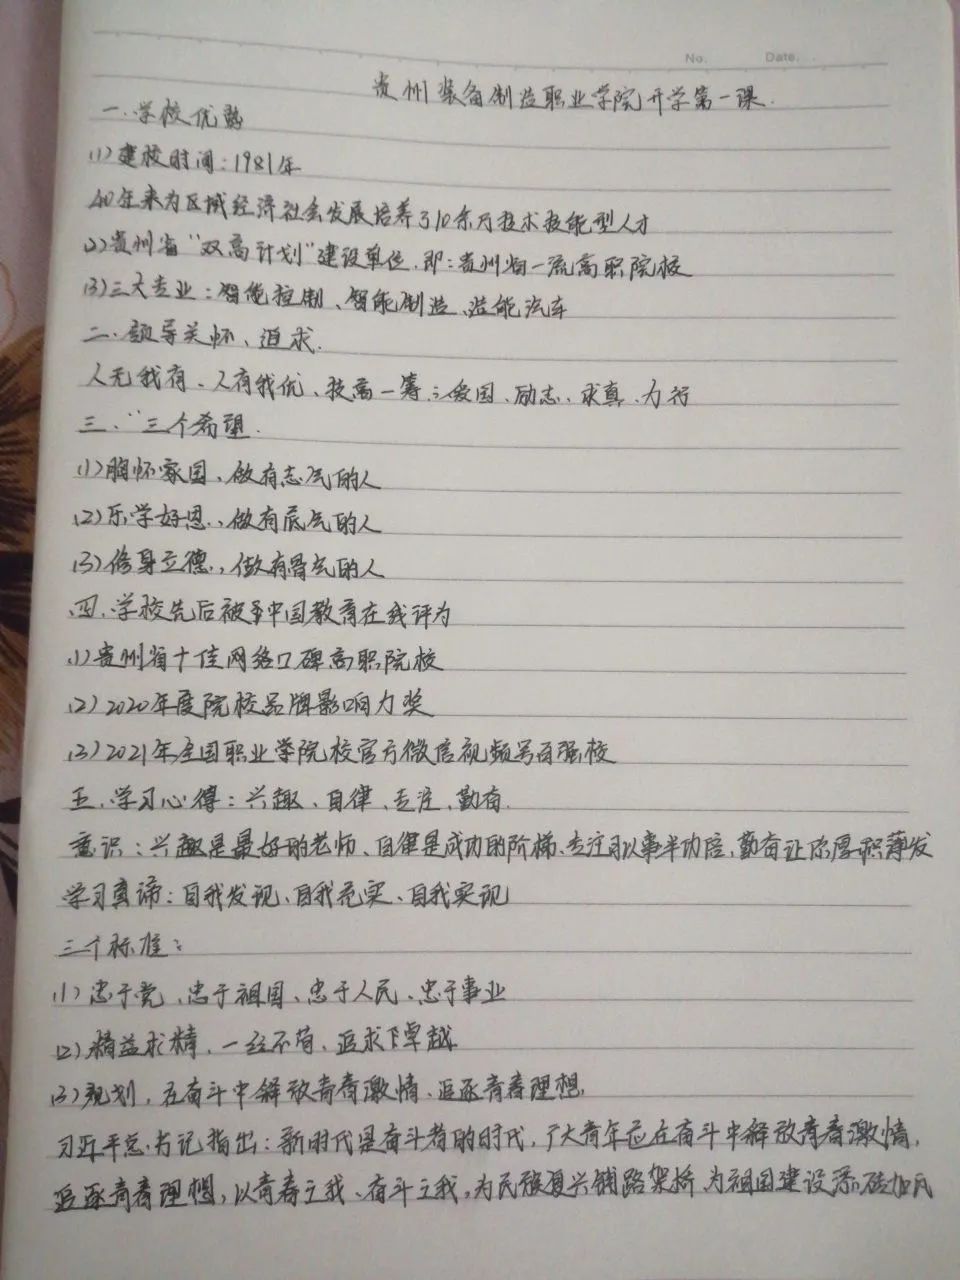 No. Date.
贵州装备制造职业学院开学第一课.
一.学校优势
(1)建校时间:1981年
40年来为区域经济社会发展培养了10余万技术技能型人才
(2)贵州省“双高计划”建设单位.即:贵州省一流高职院校
(3)三大专业:智能控制、智能制造、智能汽车
二.领导关怀、追求.
人无我有、人有我优、技高一筹;爱国、励志、求真、力行
三.“三个希望.
(1)胸怀家国、做有志气的人
(2)乐学好思、做有底气的人
(3)修身立德、做有骨气的人
四.学校先后被中国教育在线评为
(1)贵州省十佳网络口碑高职院校
(2)2020年度院校品牌影响力奖
(3)2021年全国职业学院校官方微信视频号百强校
五.学习心得:兴趣、自律、专注、勤奋.
意识:兴趣是最好的老师、自律是成功的阶梯、专注可以事半功倍,勤奋让你厚积薄发
学习真谛:自我发现、自我充实、自我实现
三个标准:
(1)忠于党、忠于祖国、忠于人民、忠于事业
(2)精益求精、一丝不苟、追求卓越
(3)规划,在奋斗中释放青春激情、追逐青春理想.
习近平总书记指出:新时代是奋斗者的时代,广大青年正在奋斗中释放青春激情,
追逐青春理想,以青春之我、奋斗之我,为民族复兴铺路架桥、为祖国建设添砖加瓦